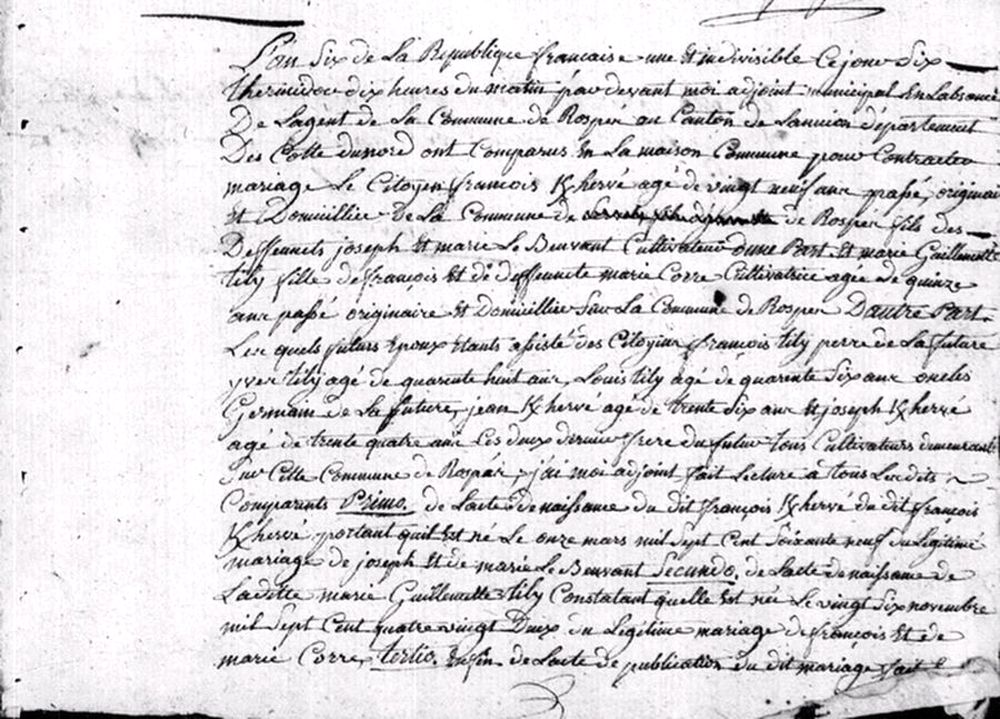 L'an Six de La Republique francaise une et indivisible Ce jour Six
thermidor dix heures du matin par devant moi adjoint municipal En Labsence
De Lagent de La Commune de Rosper au Canton de Lannion departement
Des Cotte du nord ont Comparus En La maison Commune pour Contracter
mariage Le Citoyen francois Khervé agé de vingt neuf anx passé, originai
Et Domicillier De La Commune de de Rosper fils des
Deffeunets joseph Et marie Le Beuvant Cultivateur Dune Part. Et marie Guillemette
tily fille de francois Et de deffeunete marie Corre Cultivatrice agée de quinze
anx passé originaire Et Domicillier Sur La Commune de Rosper Dautre Part.
Les quels futurs Epoux Etants assisté des Citoyens francois tily perre de La future
yves tily agé de quarente huit anx, Louis tily agé de quarente Six anx oncles
Germain de La future, jean Khervé agé de trente Six anx Et joseph Khervé
agé de trente quatre anx Les deux dernier frere du futur tous Cultivateurs demeurant
Sur Cette Commune de Rospar, j'ai moi adjoint fait Lecture à tous Les dits
Comparents Primo. de Lacte de naissance du dit francois Khervé du dit francois
Khervé portant quil Est né Le onze mars mil Sept Cent Soixante neuf du Legitime
mariage de joseph Et de marie Le Beuvant Secundo. de Lacte de naissance de
Laditte marie Guillemette tily Constatant quelle Est née Le vingt Six novembre
mil Sept Cent quatre vingt Deux du Legitime mariage de francois Et de
marie Corre, tertio. Enfin de Lacte de publication du dit mariage fait